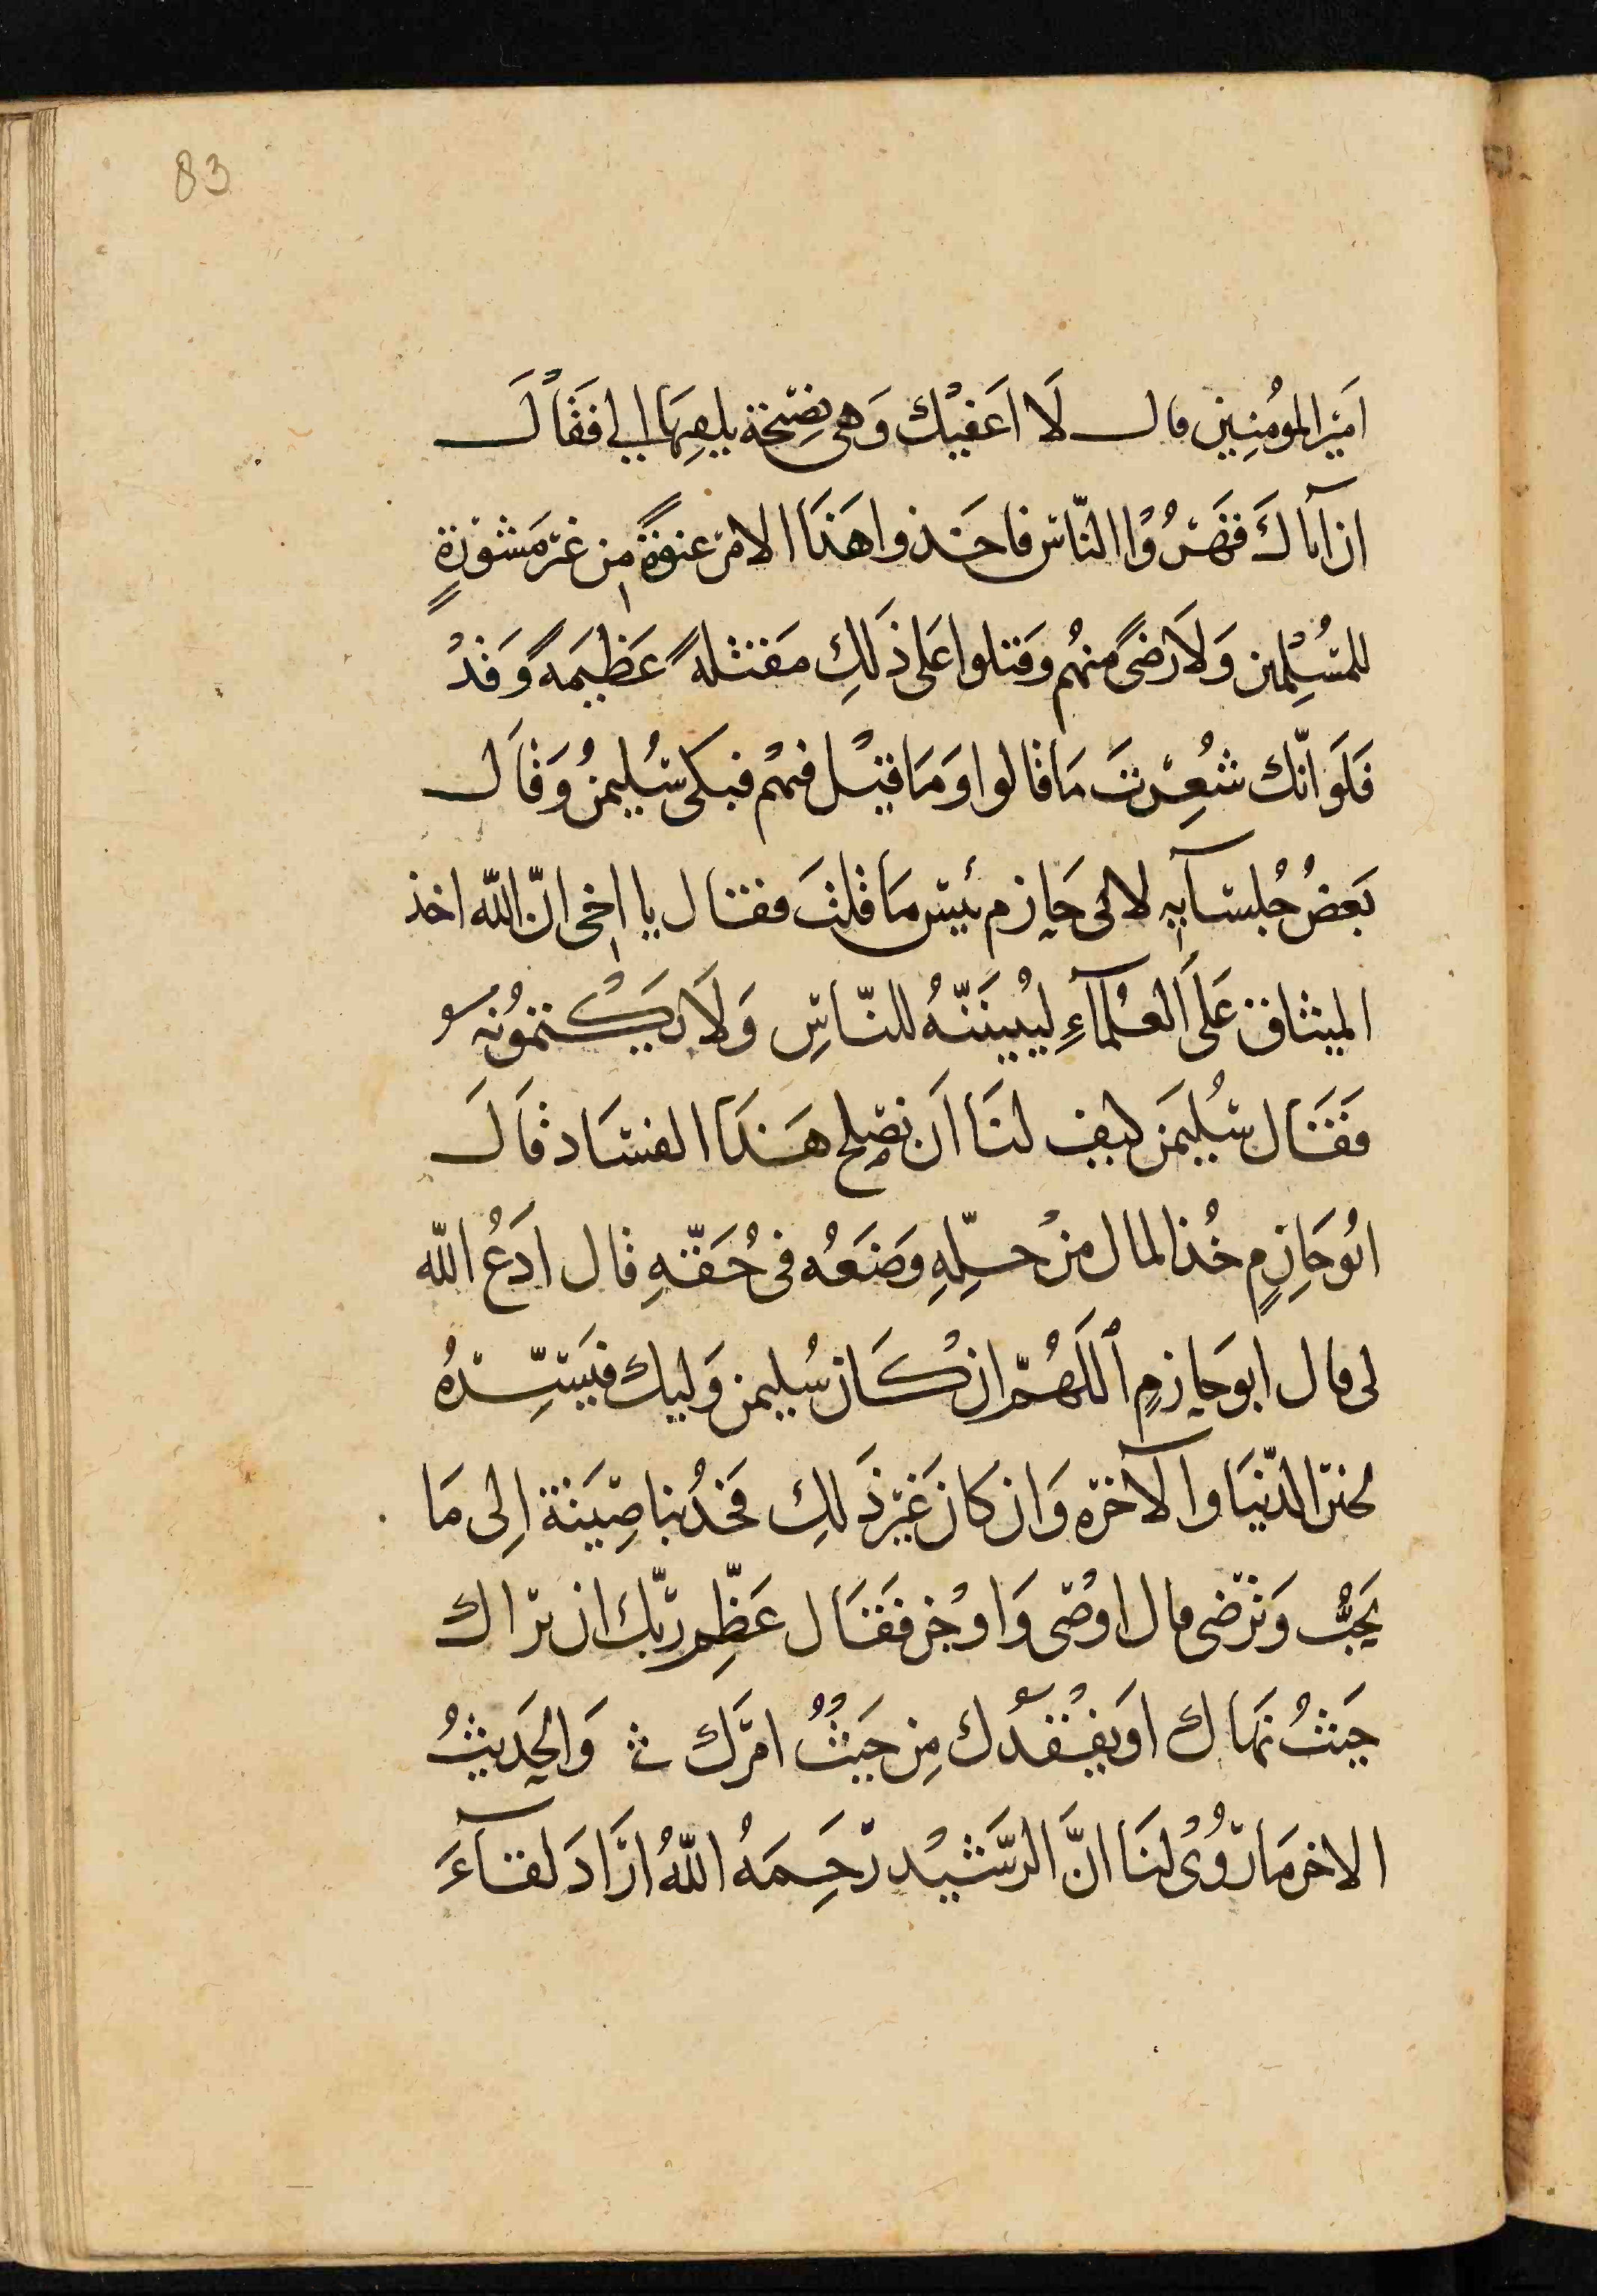 83
امَيْرالمؤمُنِيين قال لَا اَعَفيْك وَهى نصِيْحَة يلقِيهَا الي فقَاْلَ
ان اباكَ قهَرُوْا النّاس فاخَذوا هَذَا الامر عنوةً من غيْر مَشْوَرَةٍ
للمُسْلِمين وَلَا رضىً منهُم وَقتلوا عَلى ذَلكِ مَقتلةً عَظيْمَةً وَقدْ
فَلَو انّك شُعِرْتَ مَا قالوا وَمَا قيْل فيهْم فبكى سُليمنُ وَقاَل
بَعضُ جُلسَآيِه لابى حَازم بئيس مَا قلْتَ فقال يا اخى انّ اللّه اخذ
الميْثاق عَلَى العُلمآءِ ليُبيننَّهُ للنّاسِ وَلَا يَكْتمُونه
فَقَال سُليْمَن كيف لنَا اَن نصِلح هَذَا الفسَاد قاَلَ
ابُو حَازِمٍ خُذ المال منْ حلّهِ وَضَعُه فى حُقّهِ قال ادَعُ اللّه
لى قال ابو حَازمٍ اَللَهُمّ ان كَان سُليمن وَليك فيَسِّرهُ
لخيْر الدّنيَا وَالآخرَه وَان كان غَيْر ذَلكِ فَخُذ بناصِيَتة الِى مَا
يَحَبُّ وَترَضى قال اوْصى وَاوْجز فقَال عَظِّم ربّك ان يراك
حَيْثُ نهَاك اويفْقدُك مِن حَيْثُ امرَك وَالحَديثُ
الاخر مَا رُوْى لنَا انَّ الرَّشيْد رَحِمَهُ اللّهُ ارَادَ لقآءَ